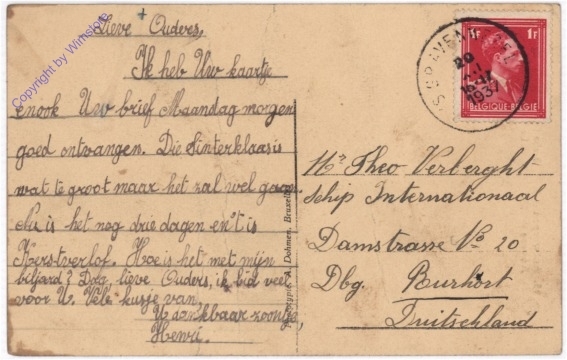 Lieve Ouders,
Ik heb Uw kaartje
en ook Uw brief Maandag morgen
goed ontvangen. Die Sinterklaas is
wat te groot maar het zal wel gaan
Nu is het nog drie dagen en't is
Kerstverlof. Hoe is het met mijn
biljard? Dag lieve Ouders, ik bid veel
voor U. Vele kusjes van
U dankbaar zoontje
Henri.
A. Dohmen, Bruxelles
1F 1F
BELGIQUE-BELGIË
20
1937
Mr Theo Verberght
schip Internationaal
Damstrasse No 20
Dbg. Ruhrort
Duitschland
Copyright by Wimstore